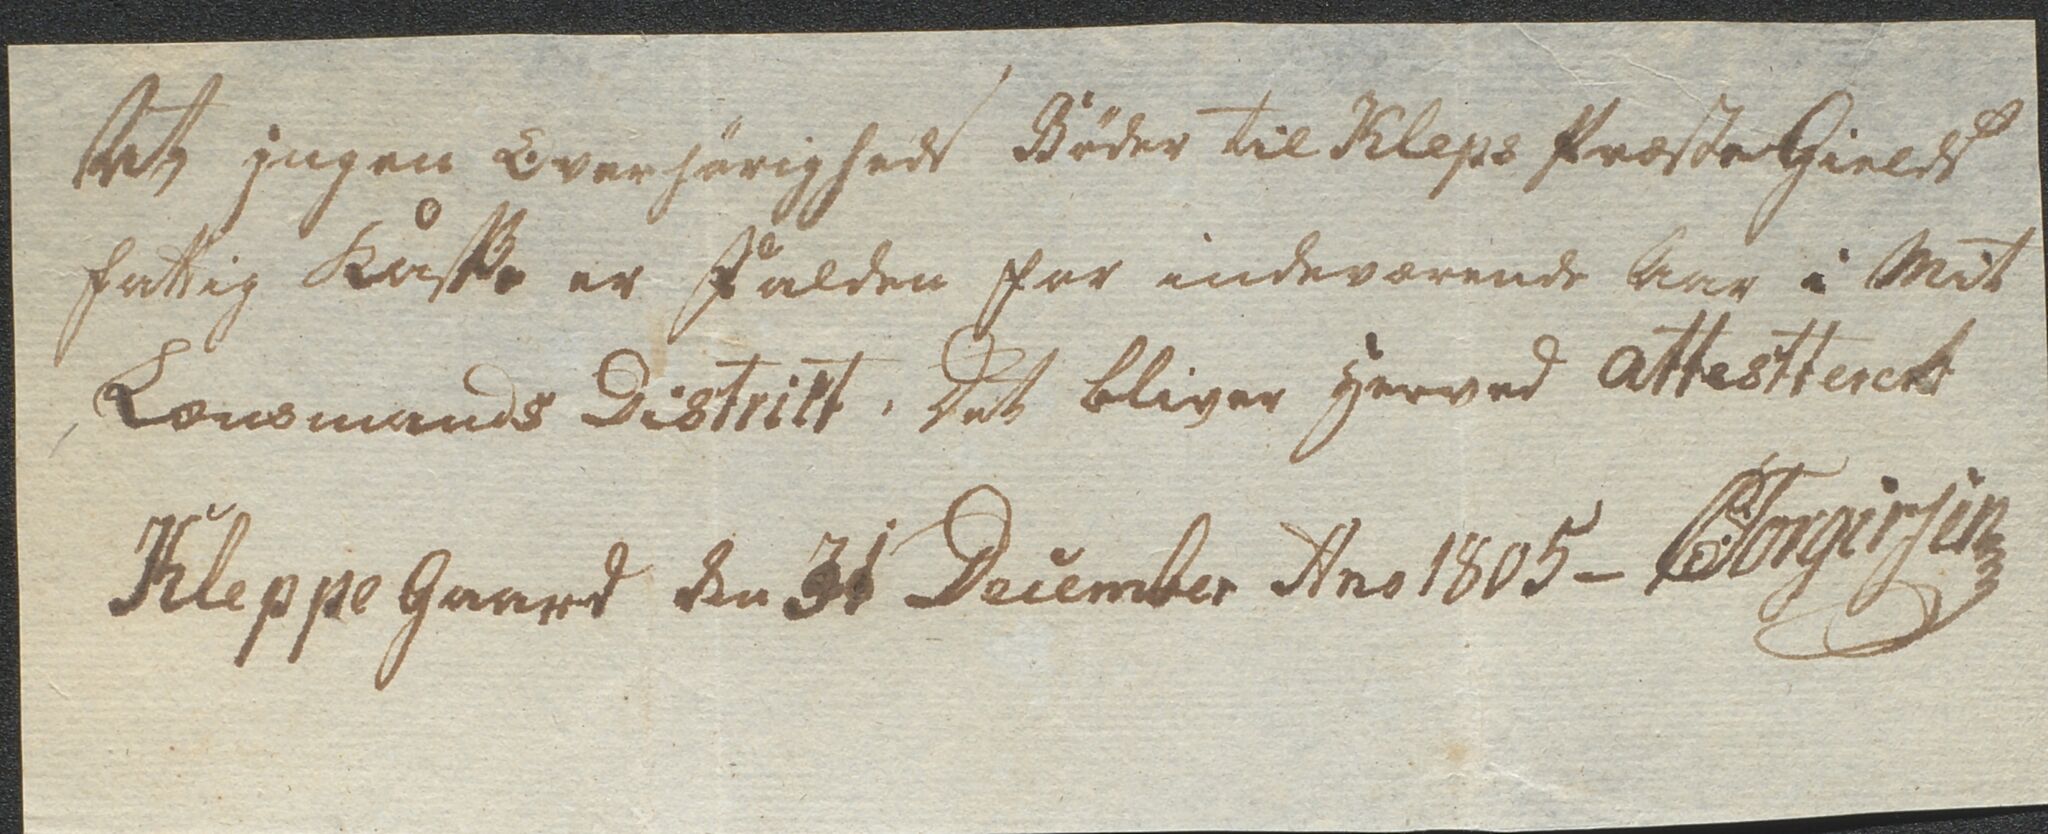 At jngen Overhörigheds Böder til Kleps Præste Gields
fattig Kasse er Falden for indeværende Aar i Mit
Lensmands Distrikt, Det bliver Herved attestterert
Kleppe Gaard den 31 December Ano 1805 – Torgersen